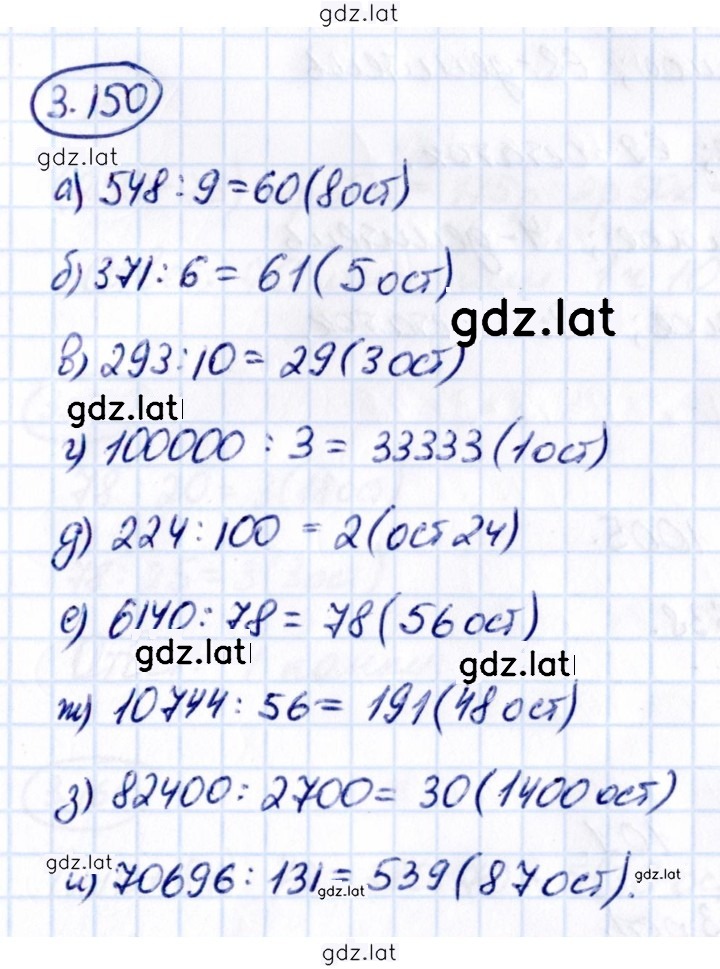 gdz.lat
3.150
gdz.lat
а) 548 : 9 = 60 (8 ост)
б) 371 : 6 = 61 (5 ост)
gdz.lat
в) 293 : 10 = 29 (3 ост)
gdz.lat
г) 100000 : 3 = 33333 (1 ост)
д) 224 : 100 = 2 (ост 24)
е) 6140 : 78 = 78 (56 ост)
gdz.lat
gdz.lat
ж) 10744 : 56 = 191 (48 ост)
з) 82400 : 2700 = 30 (1400 ост)
gdz.lat
и) 70696 : 131 = 539 (87 ост).
gdz.lat
gdz.lat
gdz.lat